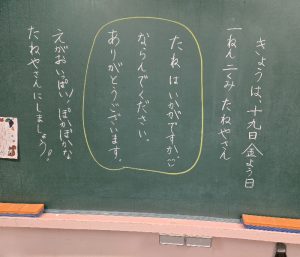 きょうは、十九日金よう日
一ねん二くみ たねやさん
たねはいかがですか。
ならんでください。
ありがとうございます。
えがおいっぱい!ぽかぽかな
たねやさんにしましょう!